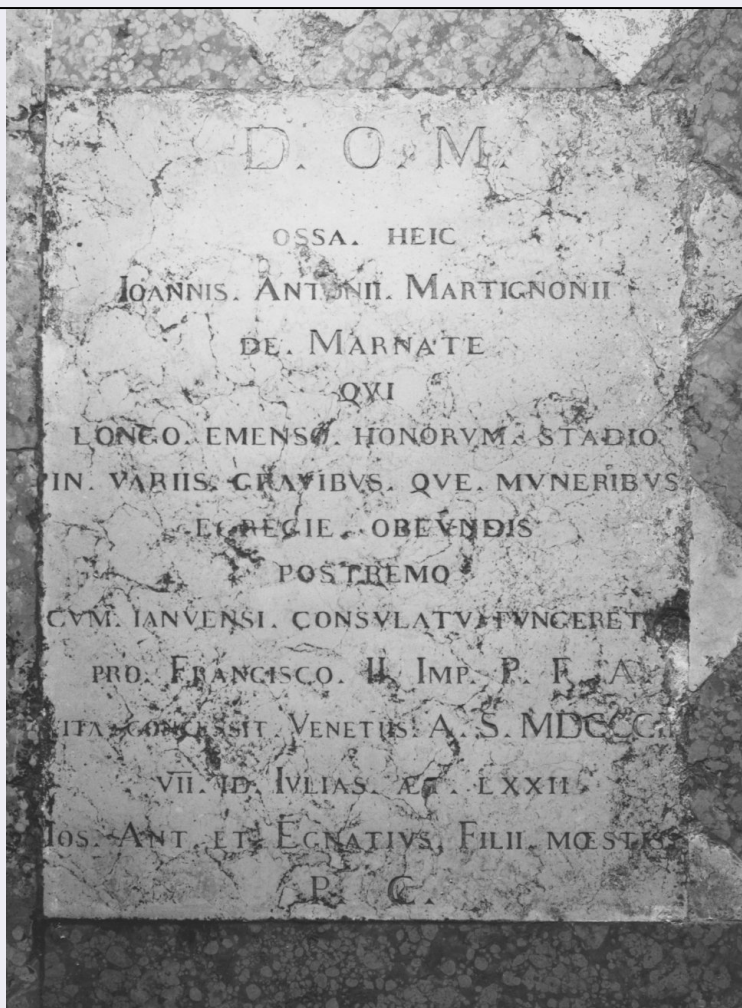 D. O. M.
OSSA. HEIC
IOANNIS. ANTONII. MARTIGNONII
DE. MARNATE
QVI
LONGO. EMENSO. HONORVM. STADIO
IN. VARIIS. GRAVIBVS. QVE. MVNERIBVS
EGREGIE. OBEVNDIS
POSTREMO
CVM. IANVENSI. CONSVLATV. FVNGERET
PRO. FRANCISCO. II. IMP. P. F. A
CONCESSIT. VENETIIS. A. S.
VII. ID. IVLIAS. ÆT. LXXII.
IOS. ANT. ET. EGNATIVS, FILII. MŒSTISS
P. C.